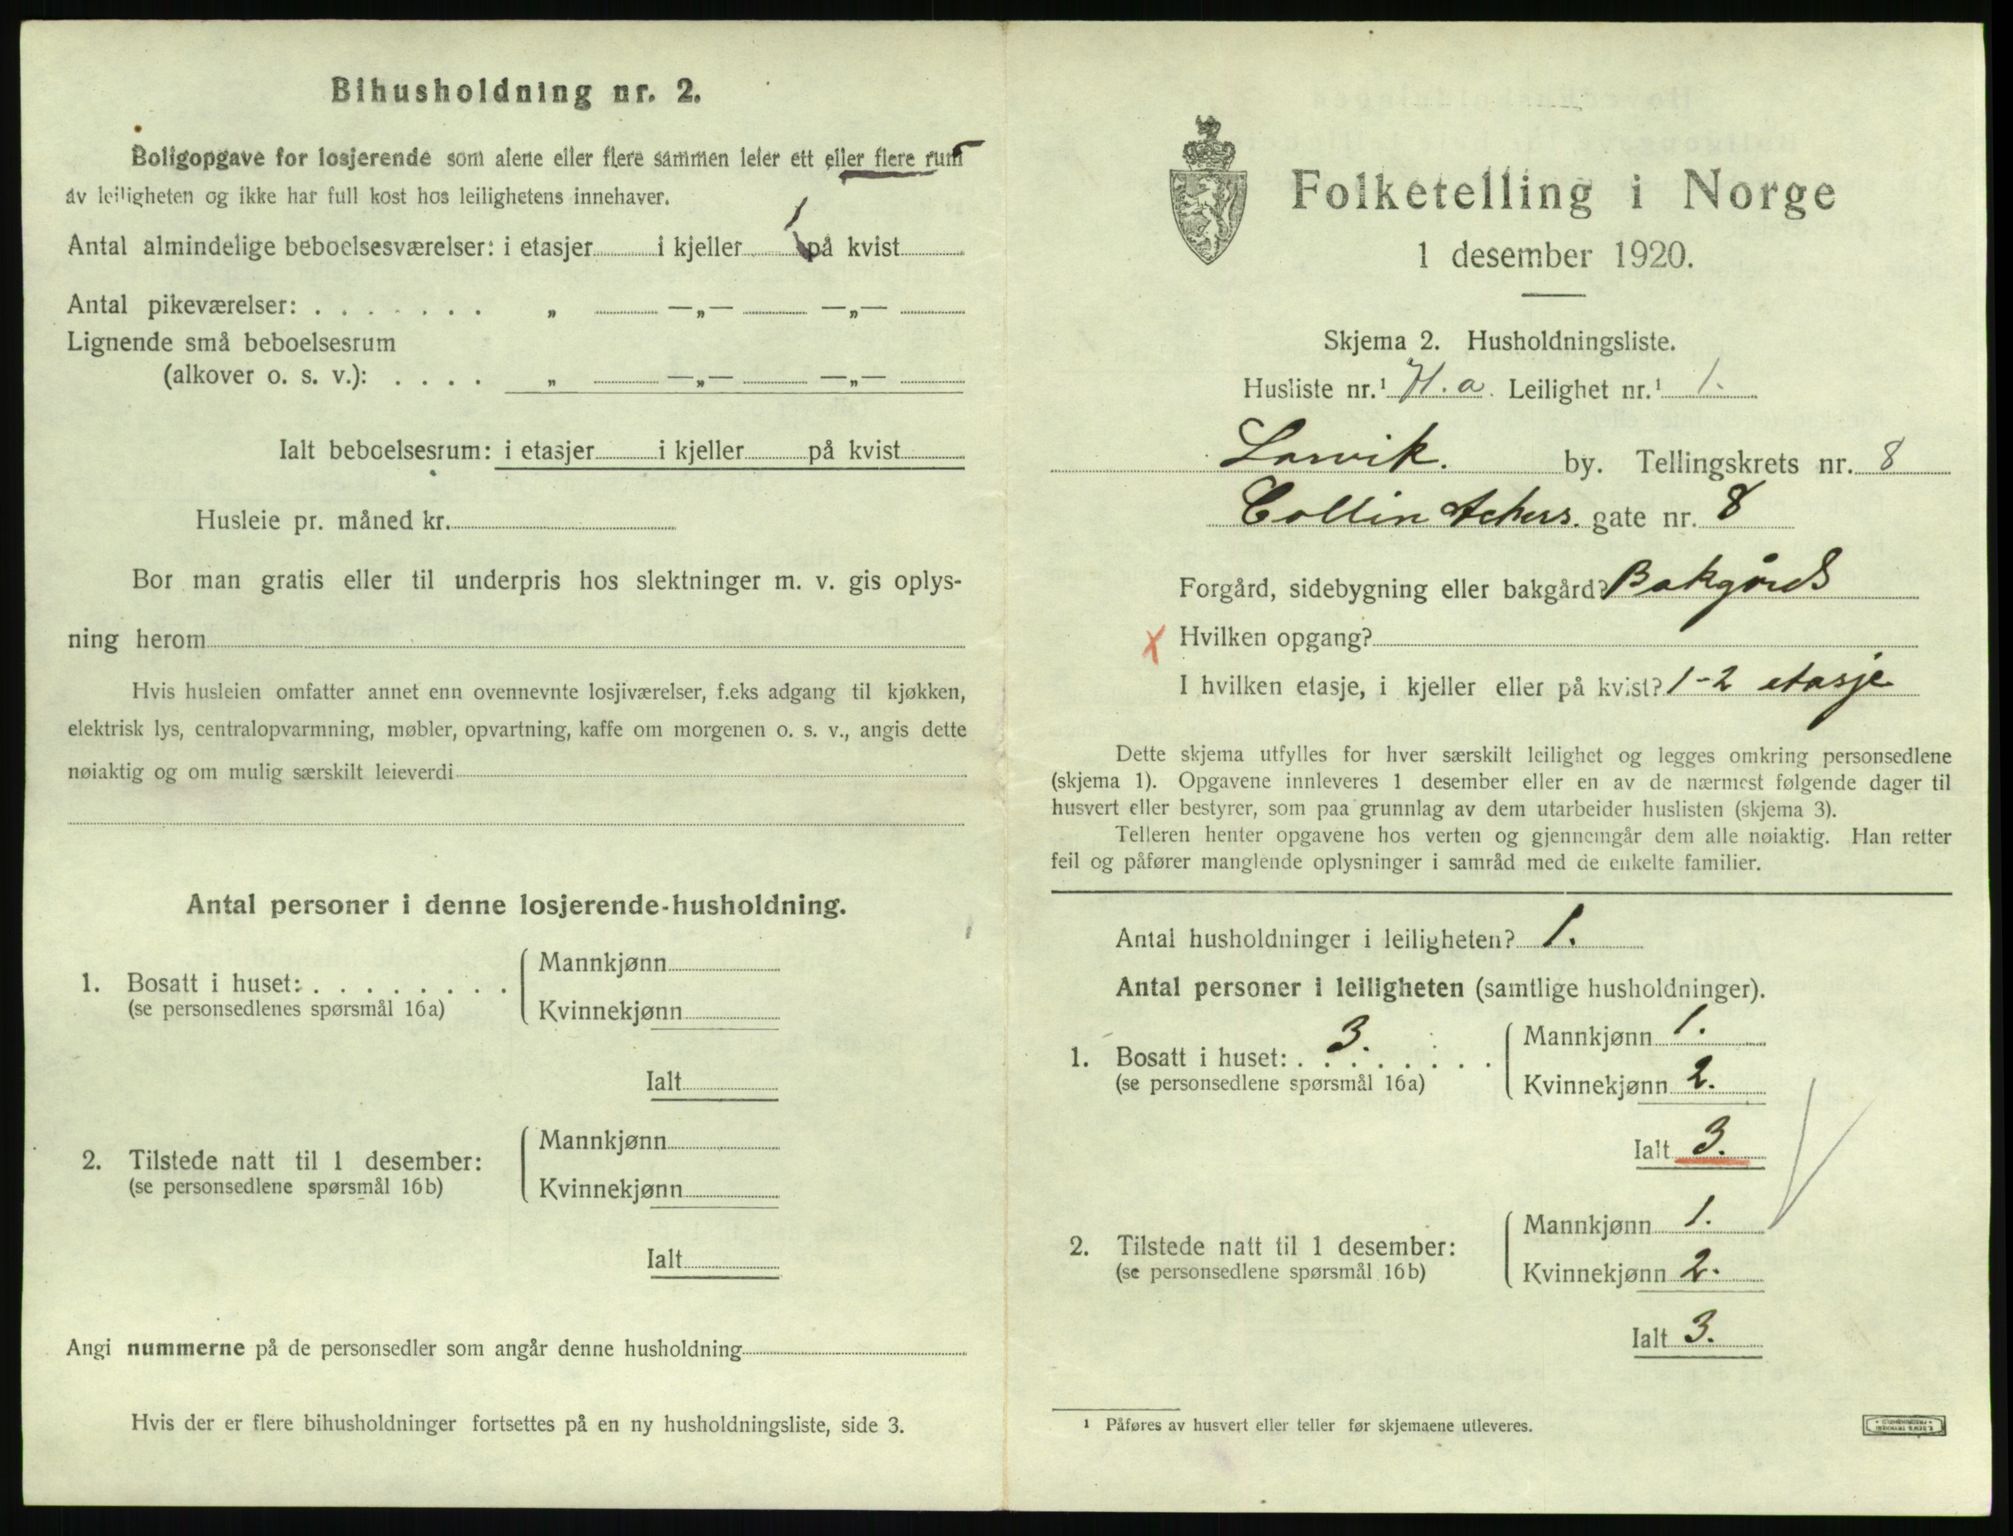 Bihusholdning nr. 2.
Boligopgave for losjerende som alene eller flere sammen leier ett eller flere rum
av leiligheten og ikke har full kost hos leilighetens innehaver.
Antal almindelige beboelsesværelser: i etasjer i kjeller 1 på kvist
Antal pikeværelser: . . . . . . . „ —„— —„—
Lignende små beboelsesrum
(alkover o. s. v.): . . . . „ —„— —„—
Ialt beboelsesrum: i etasjer i kjeller på kvist
Husleie pr. måned kr.
Bor man gratis eller til underpris hos slektninger m. v. gis oplys-
ning herom
Hvis husleien omfatter annet enn ovennevnte losjiværelser, f.eks adgang til kjøkken,
elektrisk lys, centralopvarmning, møbler, opvartning, kaffe om morgenen o. s. v., angis dette
nøiaktig og om mulig særskilt leieverdi
Antal personer i denne losjerende-husholdning.
1. Bosatt i huset: . . . . . . . . Mannkjønn
(se personsedlenes spørsmål 16a) Kvinnekjønn
Ialt
2. Tilstede natt til 1 desember: Mannkjønn
(se personsedlene spørsmål 16b) Kvinnekjønn
Ialt
Angi nummerne på de personsedler som angår denne husholdning
Hvis der er flere bihusholdninger fortsettes på en ny husholdningsliste, side 3.
Folketelling i Norge
1 desember 1920.
Skjema 2. Husholdningsliste.
Husliste nr.¹ H. a. Leilighet nr.¹ 1.
Larvik. by. Tellingskrets nr. 8
Collin Achers. gate nr. 8
Forgård, sidebygning eller bakgård? Bakgård
x Hvilken opgang?
I hvilken etasje, i kjeller eller på kvist? 1-2 etasje
Dette skjema utfylles for hver særskilt leilighet og legges omkring personsedlene
(skjema 1). Opgavene innleveres 1 desember eller en av de nærmest følgende dager til
husvert eller bestyrer, som paa grunnlag av dem utarbeider huslisten (skjema 3).
Telleren henter opgavene hos verten og gjennemgår dem alle nøiaktig. Han retter
feil og påfører manglende oplysninger i samråd med de enkelte familier.
Antal husholdninger i leiligheten? 1.
Antal personer i leiligheten (samtlige husholdninger).
1. Bosatt i huset: . 3. . . . . . . Mannkjønn 1.
(se personsedlene spørsmål 16a) Kvinnekjønn 2.
Ialt 3.
2. Tilstede natt til 1 desember: Mannkjønn 1.
(se personsedlene spørsmål 16b) Kvinnekjønn 2.
Ialt 3.
¹ Påføres av husvert eller teller før skjemaene utleveres.